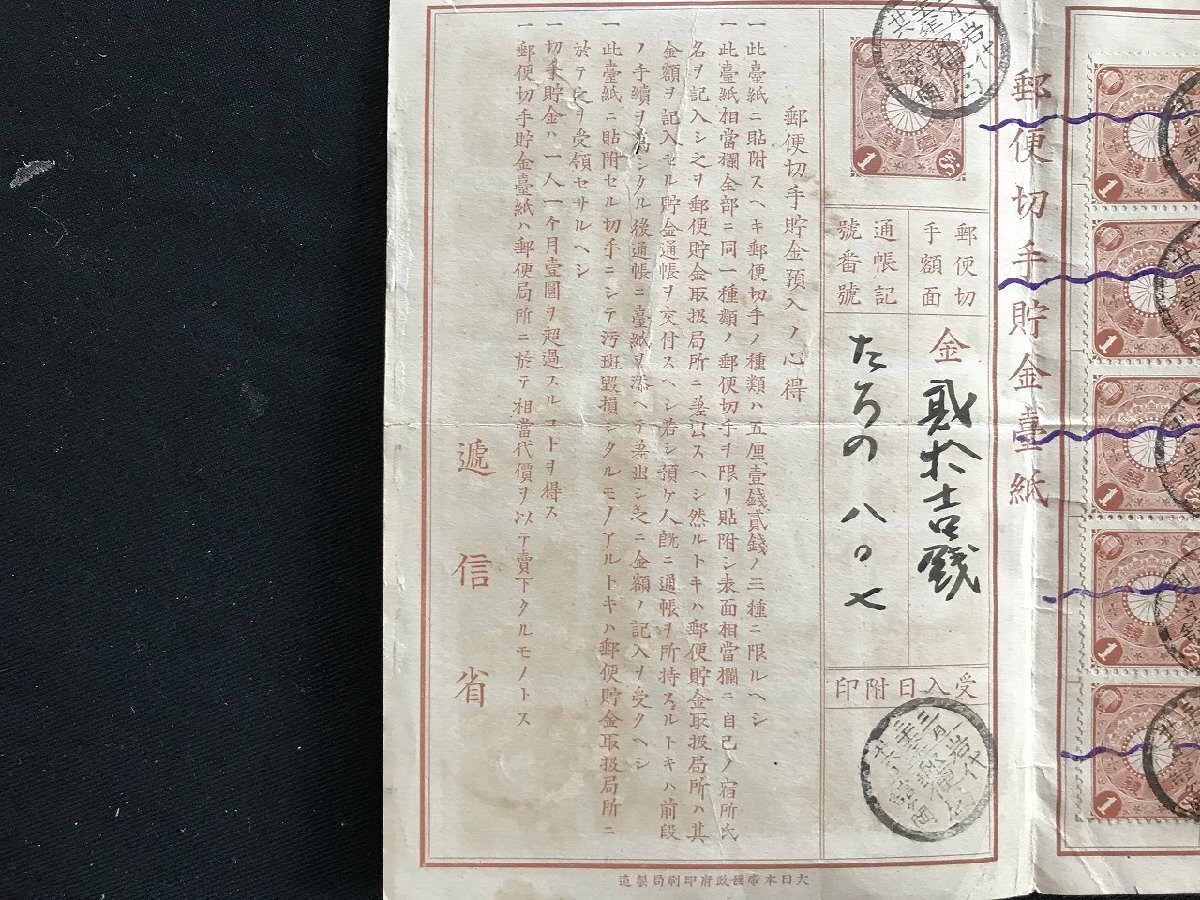 郵便切手貯金臺紙
1
1
1
1
1
1
郵便切手額面
金貳拾壱錢
通帳記號番號
たろの 八〇七
受入日附印
郵便切手貯金預入ノ心得
一此臺紙ニ貼附スヘキ郵便切手ノ種類ハ五厘壹錢貳錢ノ三種ニ限ルヘシ
一此臺紙相當欄全部ニ同一種類ノ郵便切手ヲ限リ貼附シ表面相當欄ニ自己ノ宿所氏
名ヲ記入シ之ヲ郵便貯金取扱局所ニ差出スヘシ然ルトキハ郵便貯金取扱局所ハ其
金額ヲ記入セル貯金通帳ヲ交付スヘシ若シ預ケ人旣ニ通帳ヲ所持スルトキハ前段
ノ手續ヲ爲シタル後通帳ニ臺紙ヲ添ヘテ差出シ之ニ金額ノ記入ヲ受クヘシ
一此臺紙ニ貼附セル切手ニシテ汚斑毀損シタルモノアルトキハ郵便貯金取扱局所ニ
於テ之ヲ受領セサルヘシ
一切手貯金ハ一人一个月壹圓ヲ超過スルコトヲ得ス
一郵便切手貯金臺紙ハ郵便局所ニ於テ相當代價ヲ以テ賣下クルモノトス
遞信省
大日本帝國政府印刷局製造